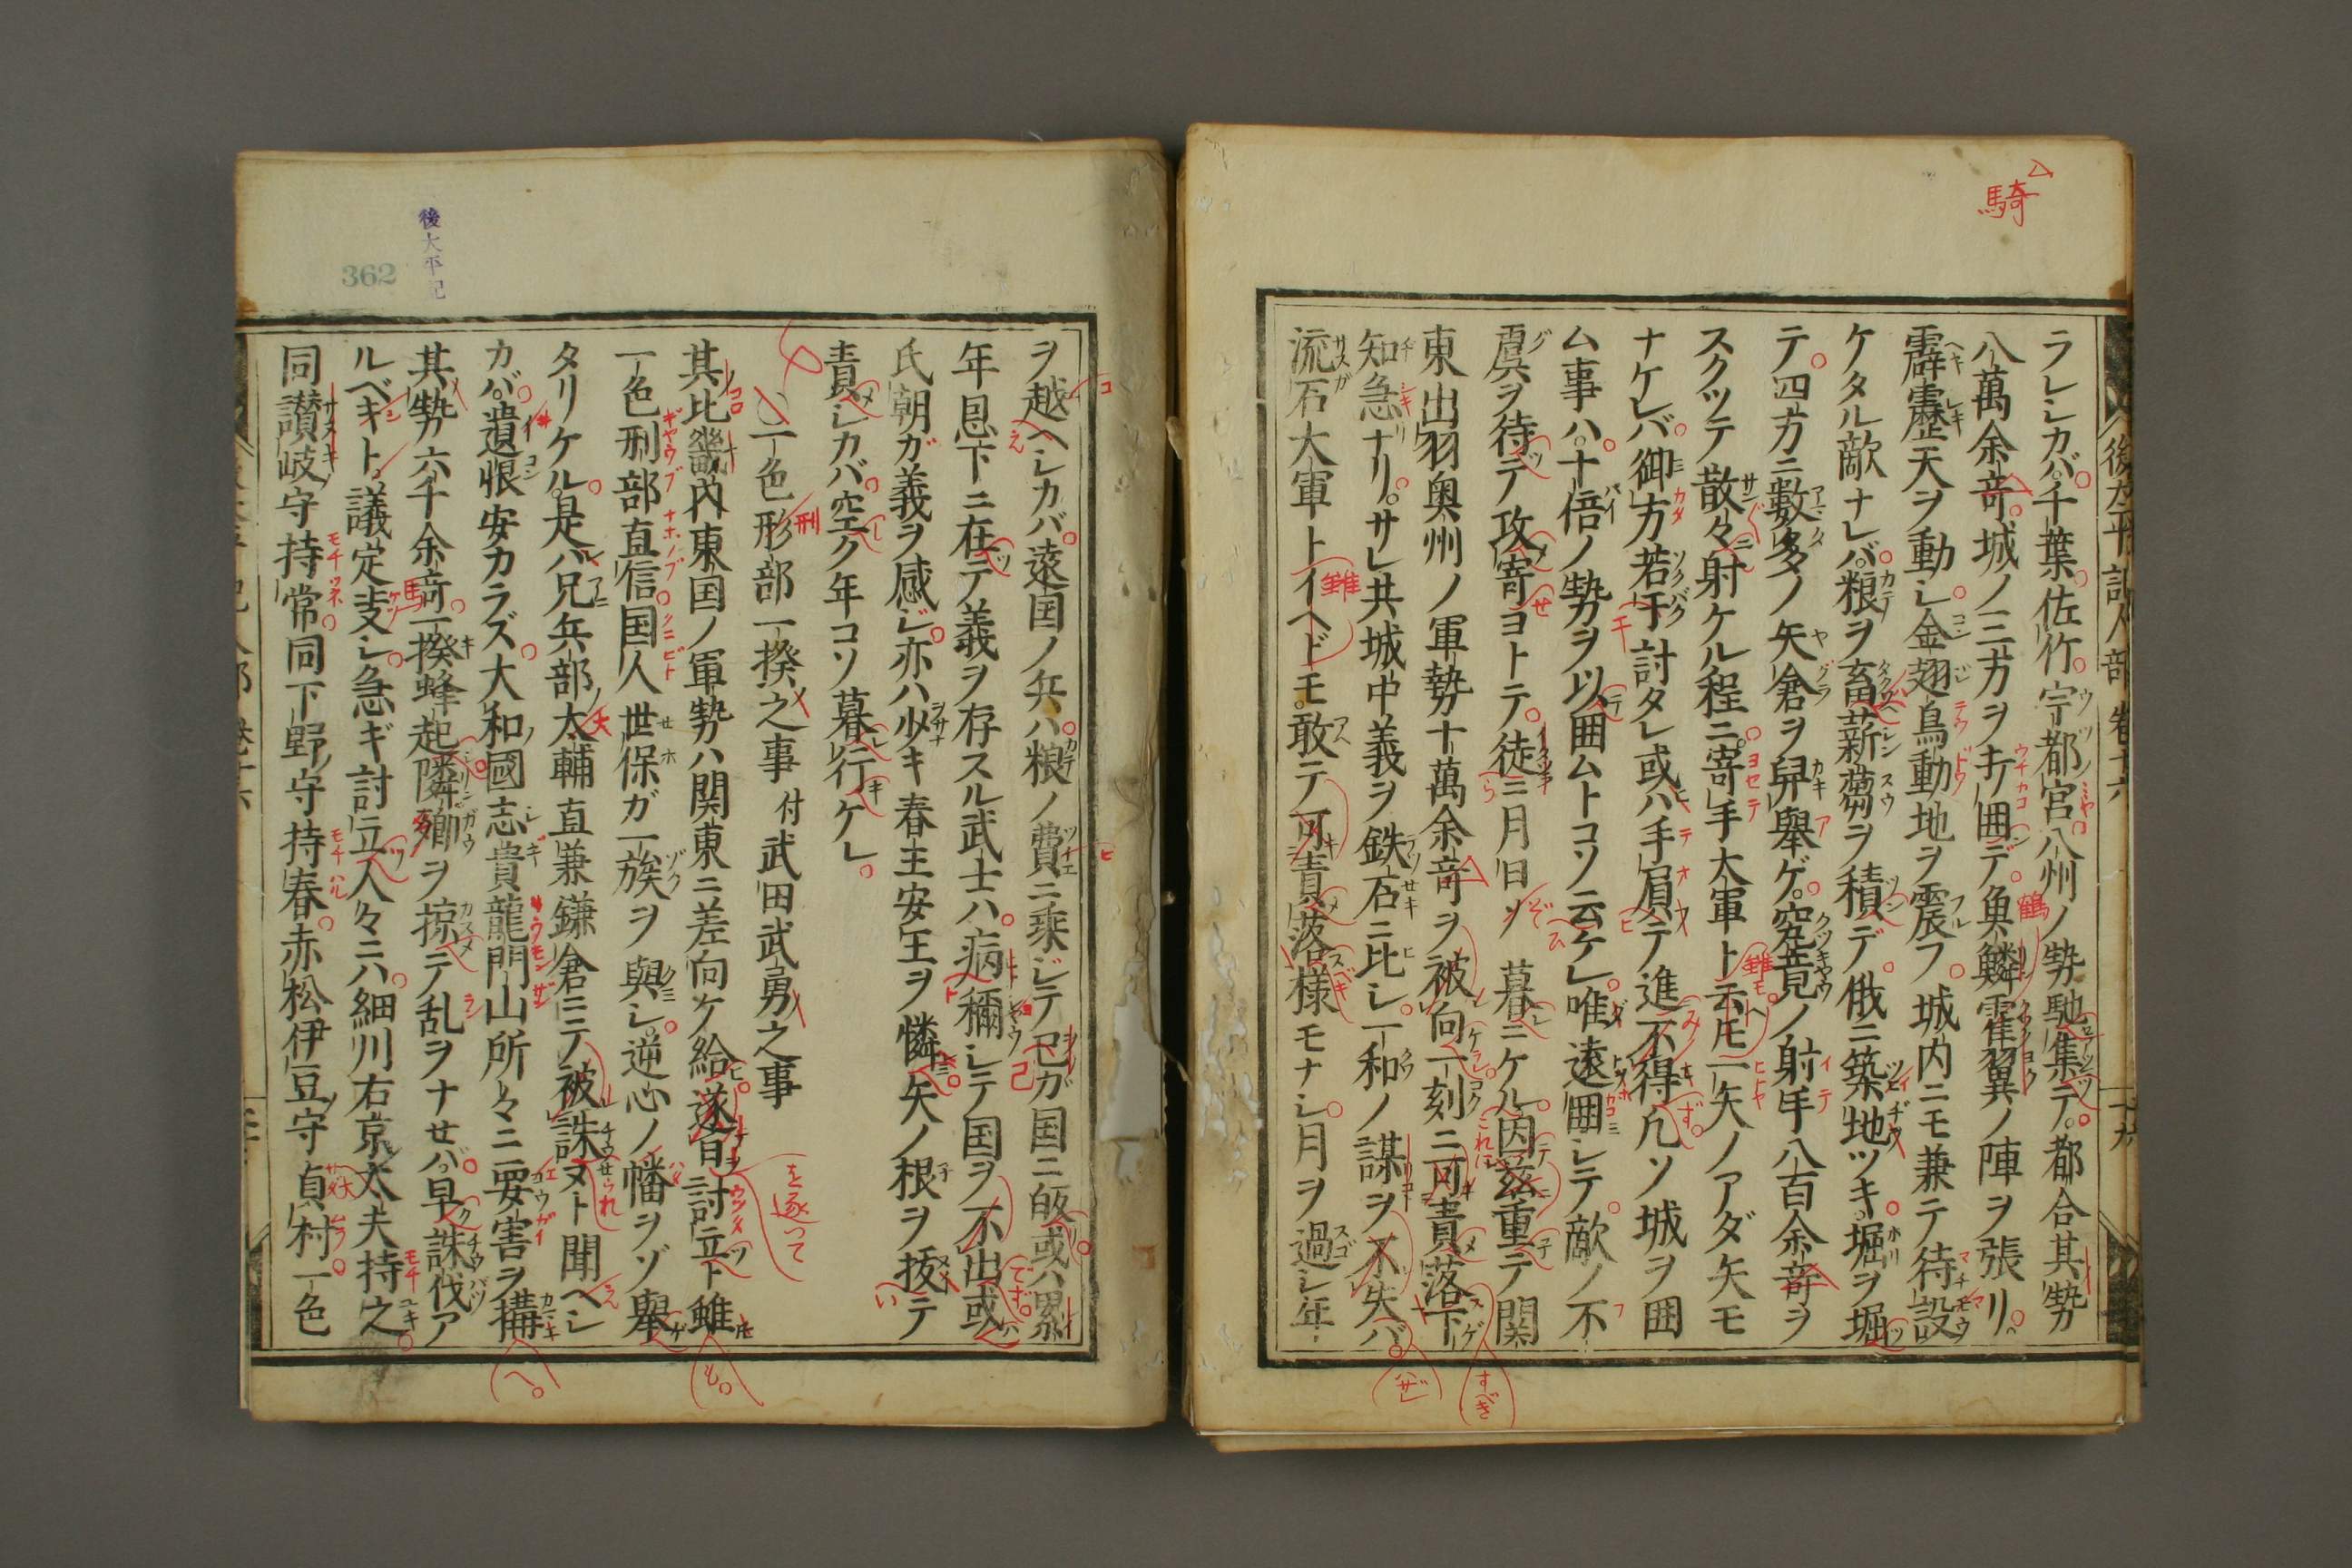 騎
ラレシカバ千葉佐竹宇都宮八州ノ勢馳集テ都合其勢
八萬余竒城ノ三方ヲ打囲デ魚鱗雀翼ノ陣ヲ張リ
霹靂天ヲ動シ金翅鳥動地ヲ震フ城内ニモ兼テ待設
ケタル敵ナレバ粮ヲ畜薪蒭ヲ積デ俄ニ築地ツキ堀ヲ堀
テ四方ニ数多ノ矢倉ヲ舁舉ゲ究竟ノ射手八百余竒ヲ
スクツテ散々射ケル程ニ寄手大軍ト云𪜈一矢ノアダ矢モ
ナケレバ御方若干討タレ或ハ手屓テ進不得凡ソ城ヲ囲
ム事ハ十倍ノ勢ヲ以囲ムトコソ云ケレ唯遠囲シテ敵ノ不
虞ヲ待テ攻寄ヨトテ徒ニ月日ソ暮ニケル因茲重テ関
東出羽奥州ノ軍勢十萬余竒ヲ被向一刻ニ可責落下
知急ナリサレ共城中義ヲ鉄石ニ比シ一和ノ謀ヲ不失バ
流石大軍トイヘドモ敢テ可責落様モナシ月ヲ過シ年
後太平記人部 巻十六
十九
後太平記
362
ヲ越ヘシカバ遠国ノ兵ハ粮ノ費ニ乗ジテ已ガ国ニ皈或ハ累
年恩下ニ在テ義ヲ存スル武士ハ病ト稱シテ国ヲ不出或
氏朝ガ義ヲ感ジ亦ハ少キ春王安王ヲ憐矢ノ根ヲ抜テ
責シカバ空ク年コソ暮行ケレ
一色形部一揆之事 付武田武勇之事
其比畿内東国ノ軍勢ハ関東ニ差向ケ給遂旨討立ト雖
一色刑部直信国人世保ガ一族ヲ與シ逆心ノ幡ヲゾ舉
タリケル是ハ兄兵部太輔直兼鎌倉ニテ被誅ヌト聞ヘシ
カバ遺恨安カラズ大和國志貴龍門山所々ニ要害ヲ搆
其勢六千余竒一揆蜂起隣郷ヲ掠テ乱ヲナせバ早誅伐ア
ルベキト議定㕝シ急ギ討立人々ニハ細川右京太夫持之
同讃岐守持常同下野守持春赤松伊豆守貞村一色